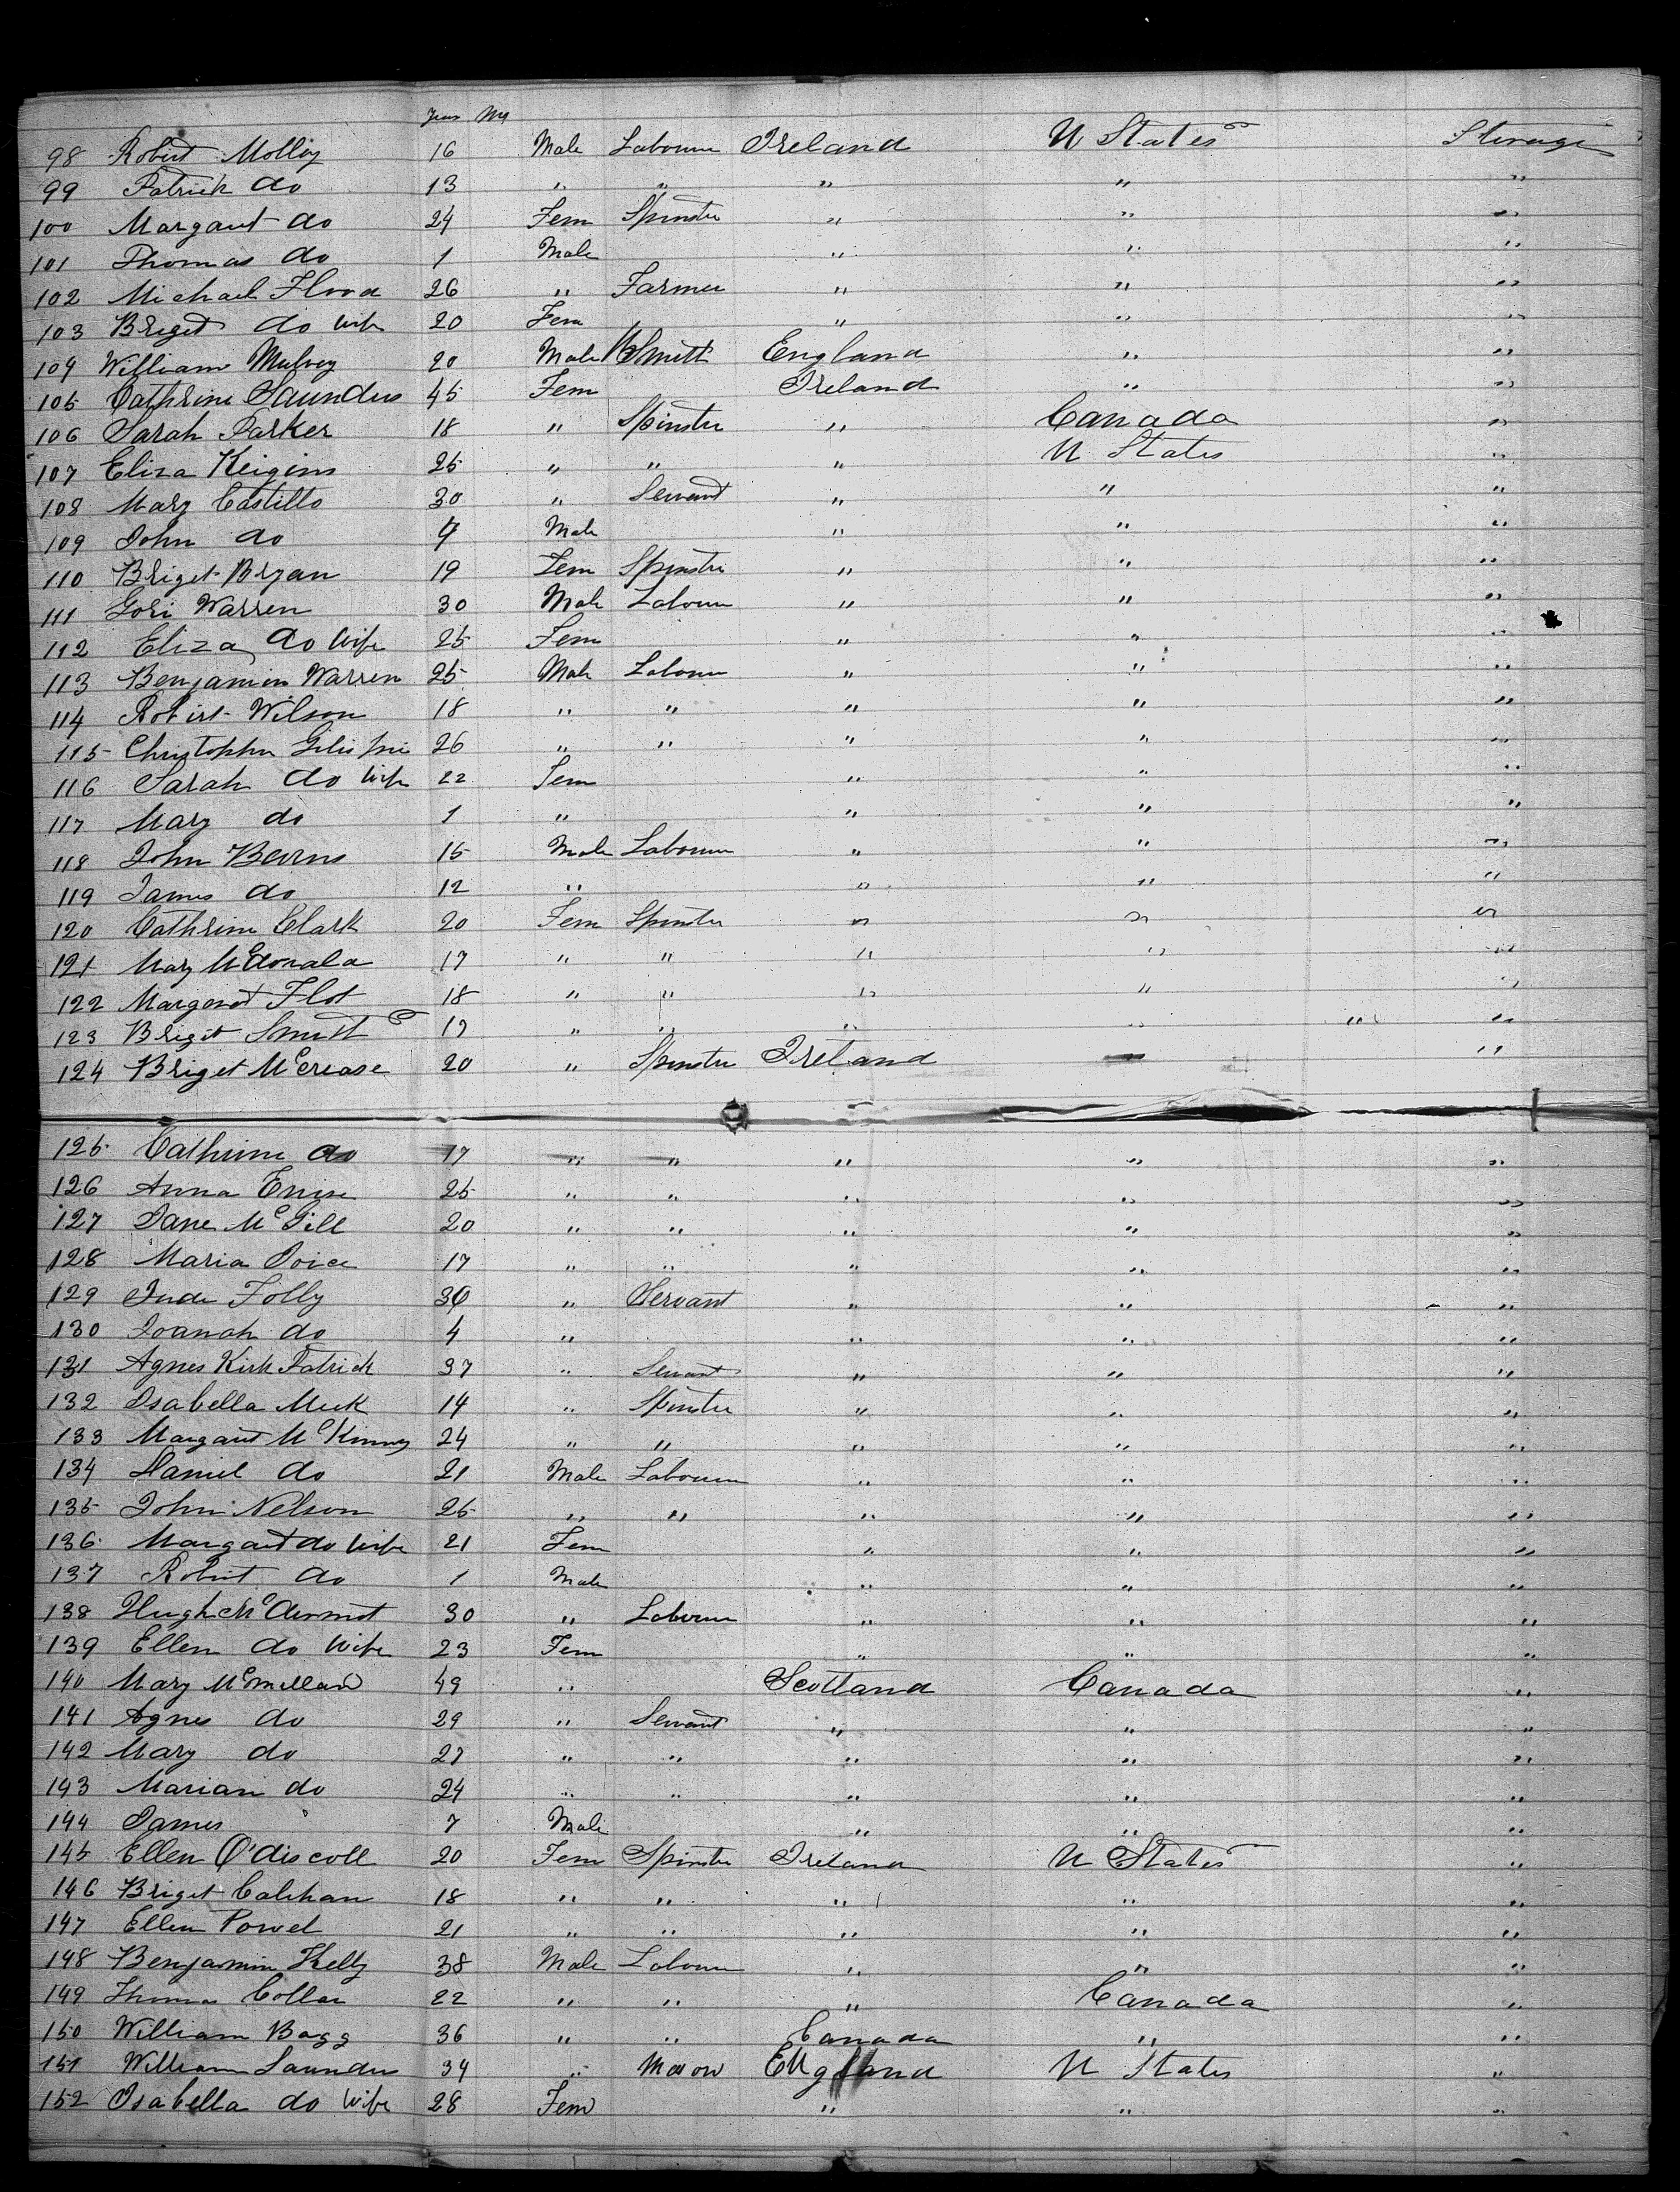 Years Ms
98 Robert Molloy 16 Male Labourer Ireland U States Steerage
99 Patrick do 13 " " " " "
100 Margaret do 24 Fem Spinster " " "
101 Thomas do 1 Male " " "
102 Michael Flood 26 " Farmer " " "
103 Briget do wife 20 Fem " " "
104 William Mulvey 20 Male B Smith England " "
105 Cathrine Saunders 45 Fem Ireland " "
106 Sarah Parker 18 " Spinster " Canada "
107 Eliza Keigins 25 " " " U States "
108 Mary Costillo 30 " Servant " " "
109 John do 7 Male " " "
110 Briget Bryan 19 Fem Spinster " " "
111 Warren 30 Male Labourer " " "
112 Eliza do wife 25 Fem " " "
113 Benjamin Warren 25 Male Labourer " " "
114 Robert Wilson 18 " " " " "
115 Christopher Gilispie 26 " " " " "
116 Sarah do wife 22 Fem " " "
117 Mary do 1 " " " "
118 John Bearns 15 Male Labourer " " "
119 James do 12 " " " "
120 Cathrine Clark 20 Fem Spinster " " "
121 Mary McDonald 17 " " " " "
122 Margaret Flot 18 " " " " "
123 Briget Smith 19 " " " " " "
124 Briget McCrease 20 " Spinster Ireland " "
125 Cathrine do 17 " " " " "
126 Anna 25 " " " " "
127 Jane McGill 20 " " " " "
128 Maria Joice 17 " " " " "
129 Jude Folly 30 " Servant " " "
130 Joanah do 4 " " " "
131 Agnes Kirk Patrick 37 " Servant " " "
132 Isabella Meek 14 " Spinster " " "
133 Margaret McKinney 24 " " " " "
134 Daniel do 21 Male Labourer " " "
135 John Nelson 25 " " " " "
136 Margaret do wife 21 Fem " " "
137 Robert do 1 Male " " "
138 Hugh McDermot 30 " Labourer " " "
139 Ellen do wife 23 Fem " " "
140 Mary McMillan 49 " Scotland Canada "
141 Agnes do 29 " Servant " " "
142 Mary do 27 " " " " "
143 Marian do 24 " " " " "
144 James 7 Male " " "
145 Ellen O'discoll 20 Fem Spinster Ireland U States "
146 Briget Calehan 18 " " " " "
147 Ellen Powel 21 " " " " "
148 Benjamin Kelly 38 Male Labourer " " "
149 Thomas Collar 22 " " " Canada "
150 William Bagg 36 " " Canada " "
151 William Saunders 34 " Mason England U States "
152 Isabella do wife 28 Fem " " "